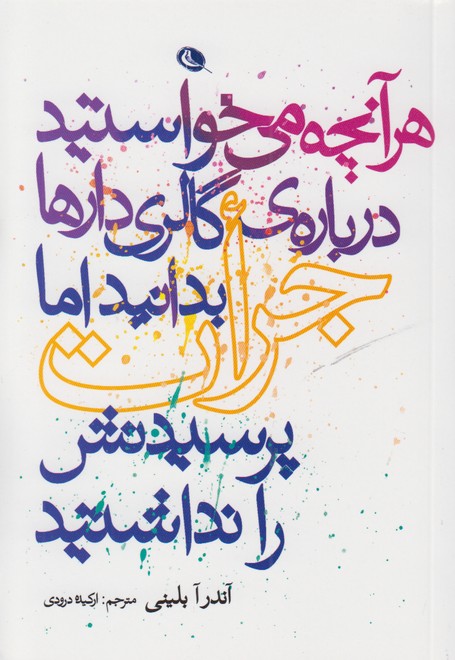 هر آنچه می‌خواستید
درباره‌ی گالری‌دارها
بدانید اما
جرأت
پرسیدنش
را نداشتید
آندرآ بلینی مترجم: ارکیده درودی